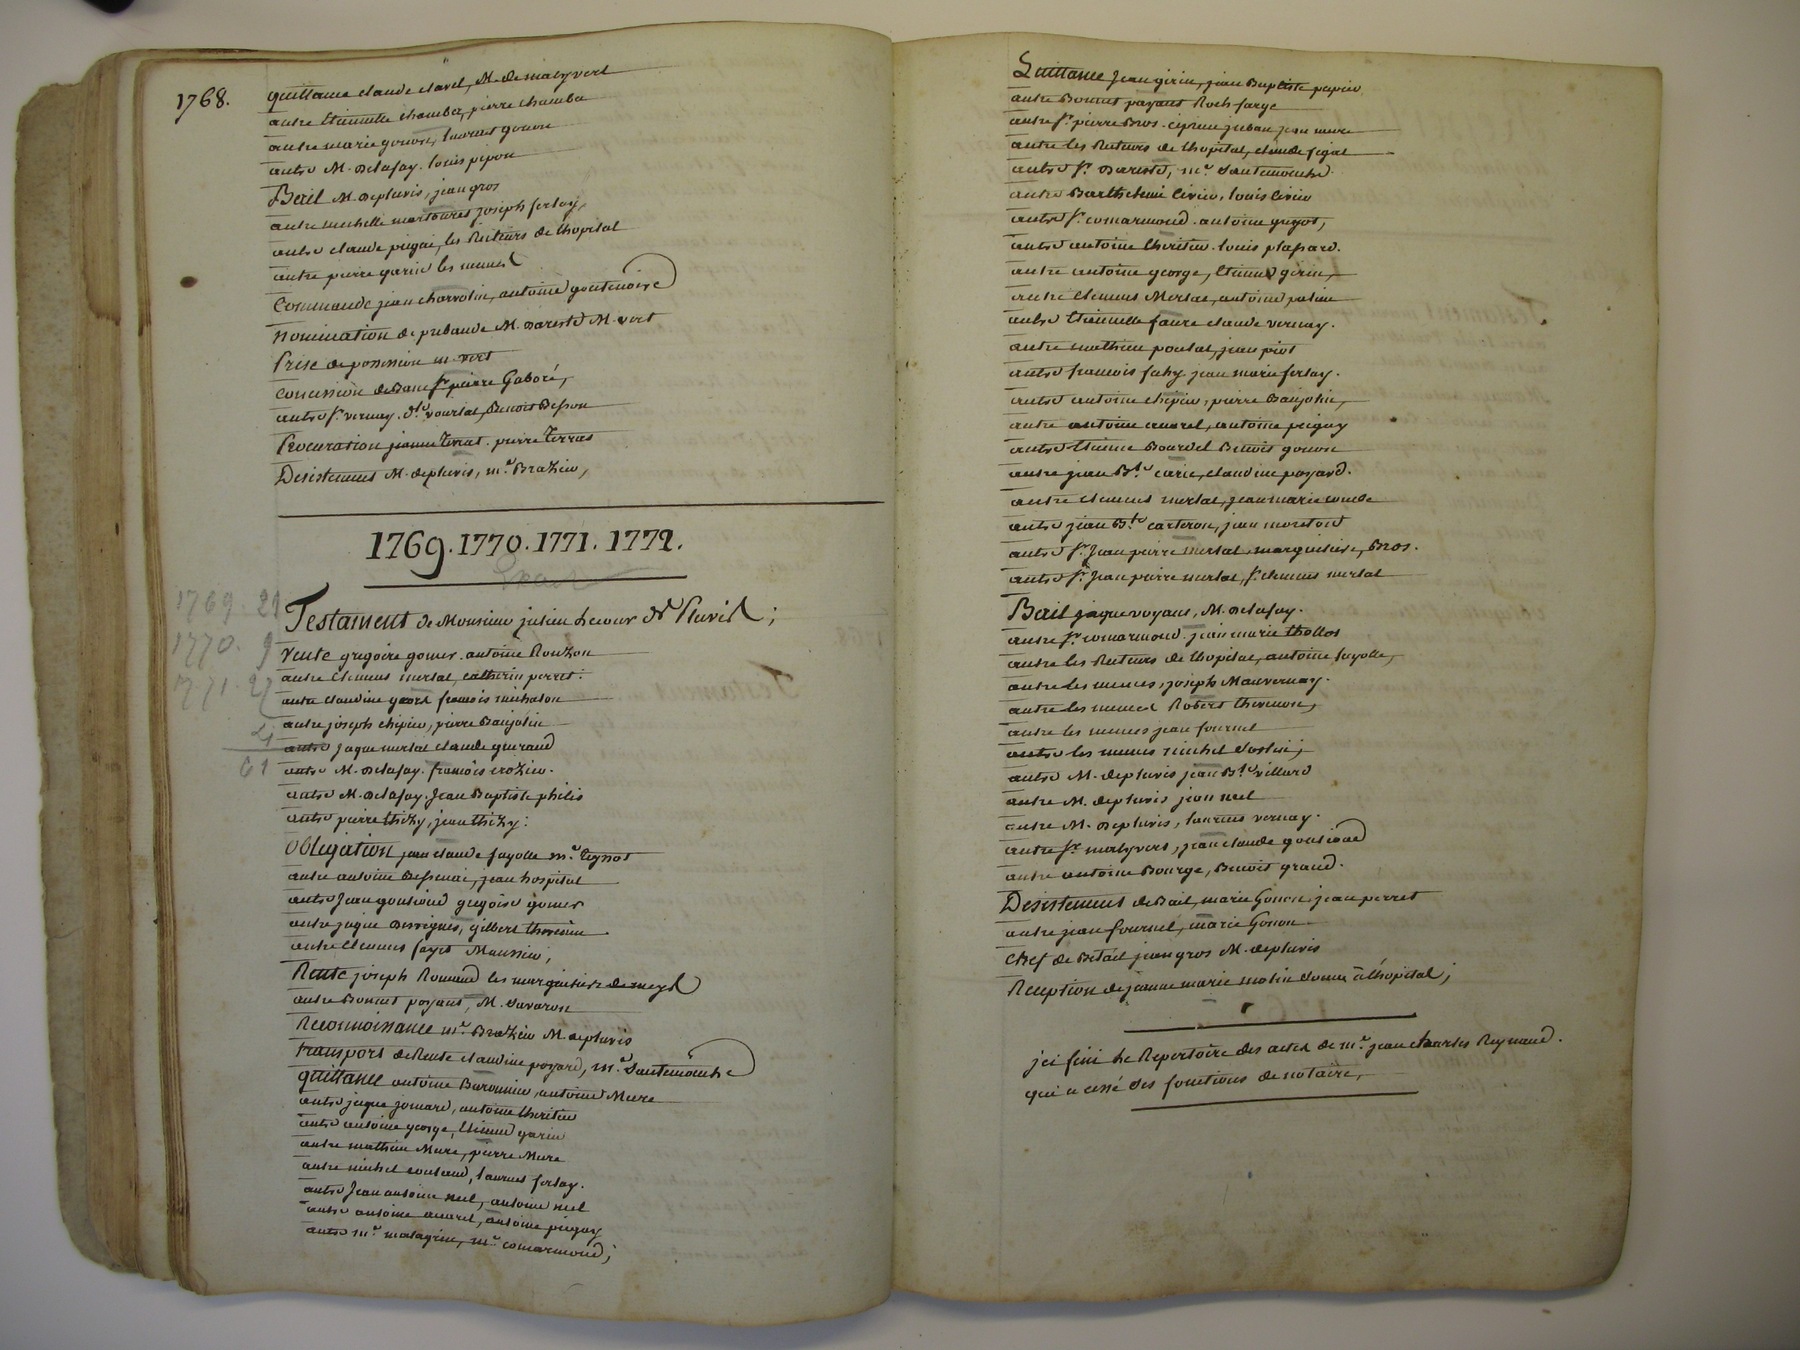 1768.
quittance claude clavel, M. de malyvert
autre Etiennette chamba, pierre chamba
autre marie gonon, laurent gonon
autre M. Delafay. louis pipon
Bail M. depluvis, jean gros
autre michelle joseph ferlay,
autre claude pugai, les Recteurs de lhopital
autre pierre garin les memes
Commande jean charrolin, antoine goutenoire
nomination de prebande M. dareste M. vert
Prise de possession m. vert
concession de Banc sr. pierre Gaboré,
autre sr. vernay. dlle vourlat, Benoit Besson
Procuration jeanne terrat. pierre terras
Desistement M. depluvis, me. Brazier,
1769. 1770. 1771. 1772.
1769. 21
1770. 9
1771. 27
4
61
Testament de Monsieur julien hecour de Pluvis;
Vente gregoire gomer. antoine Rouzon
autre clement merlat, catherin perret.
autre claudine francois michalon
autre joseph chipier, pierre Baujolin
autre jaque merlat claude guerand
autre M. Delafay. francois crozier.
autre M. Delafay. Jean Baptiste philis
autre pierre thizy, jean thizy.
Obligation jean claude fayolle me.
autre antoine jean hospital
autre Jean gregoire gomer
autre jaque gilbert
autre clement fayet
Rente joseph Romand les marguilliers
autre Bonnet poyant, M. Savaron
Reconnoissance me. Brazier M. depluvis
transport de Rente claudine poyard, me. Santemouche
quittance antoine Baronnier, antoine Mure
autre jaque jomard, antoine theritier
autre antoine george, Etienne garin
autre mathieu Mure, pierre Mure
autre michel laurent ferlay.
autre Jean antoine neel, antoine neel
autre antoine antoine pugay
autre me. malagrin, me. comarmond;
Quittance Jean girin, jean Baptiste papier
autre Bonnet payant Roch farge
autre sr. pierre Bros. jean mure
autre les Recteurs de lhopital, claude figat
autre sr. Dareste, me. Santemouche.
autre Barthelemi louis
autre sr. comarmond. antoine guyot,
autre antoine theritier. louis plassard.
autre antoine george, Etienne girin,
autre clement Merlat, antoine
autre Etiennette faure claude vernay.
autre mathieu poulat, jean piot
autre francois fahy. jean marie ferlay.
autre antoine chipier, pierre Baujolin,
autre antoine antoine pugay
autre Etienne Bourdel Benoit gonon
autre jean Bte carie, claudine poyard.
autre clement merlat, jean marie combe
autre jean Bte carteron, jean moreton
autre sr. Jean pierre merlat, marguerite, Bros.
autre sr. Jean pierre merlat, sr. clement merlat
Bail jaque voyant, M. Delafay.
autre sr. comarmond. jean marie thollot
autre les Recteurs de lhopital, antoine fayolle,
autre les memes, joseph Mauvernay.
autre les memes Robert thevenon,
autre les memes jean fournel
autre les memes michel
autre M. depluvis jean Bte villard
autre M. depluvis jean neel
autre M. depluvis, laurent vernay.
autre sr. malyvert, jean claude
autre antoine Bourge, Benoit giraud.
Desistement de Bail, marie Gonon, jean perret
autre jean fournel, marie Gonon
chef de Betail jean gros M. depluvis
Reception de jeanne marie molin donnee à lhopital;
j'ai fini le Repertoire des actes de me. jean charles Reynaud.
qui a cessé ses fonctions de notaire,